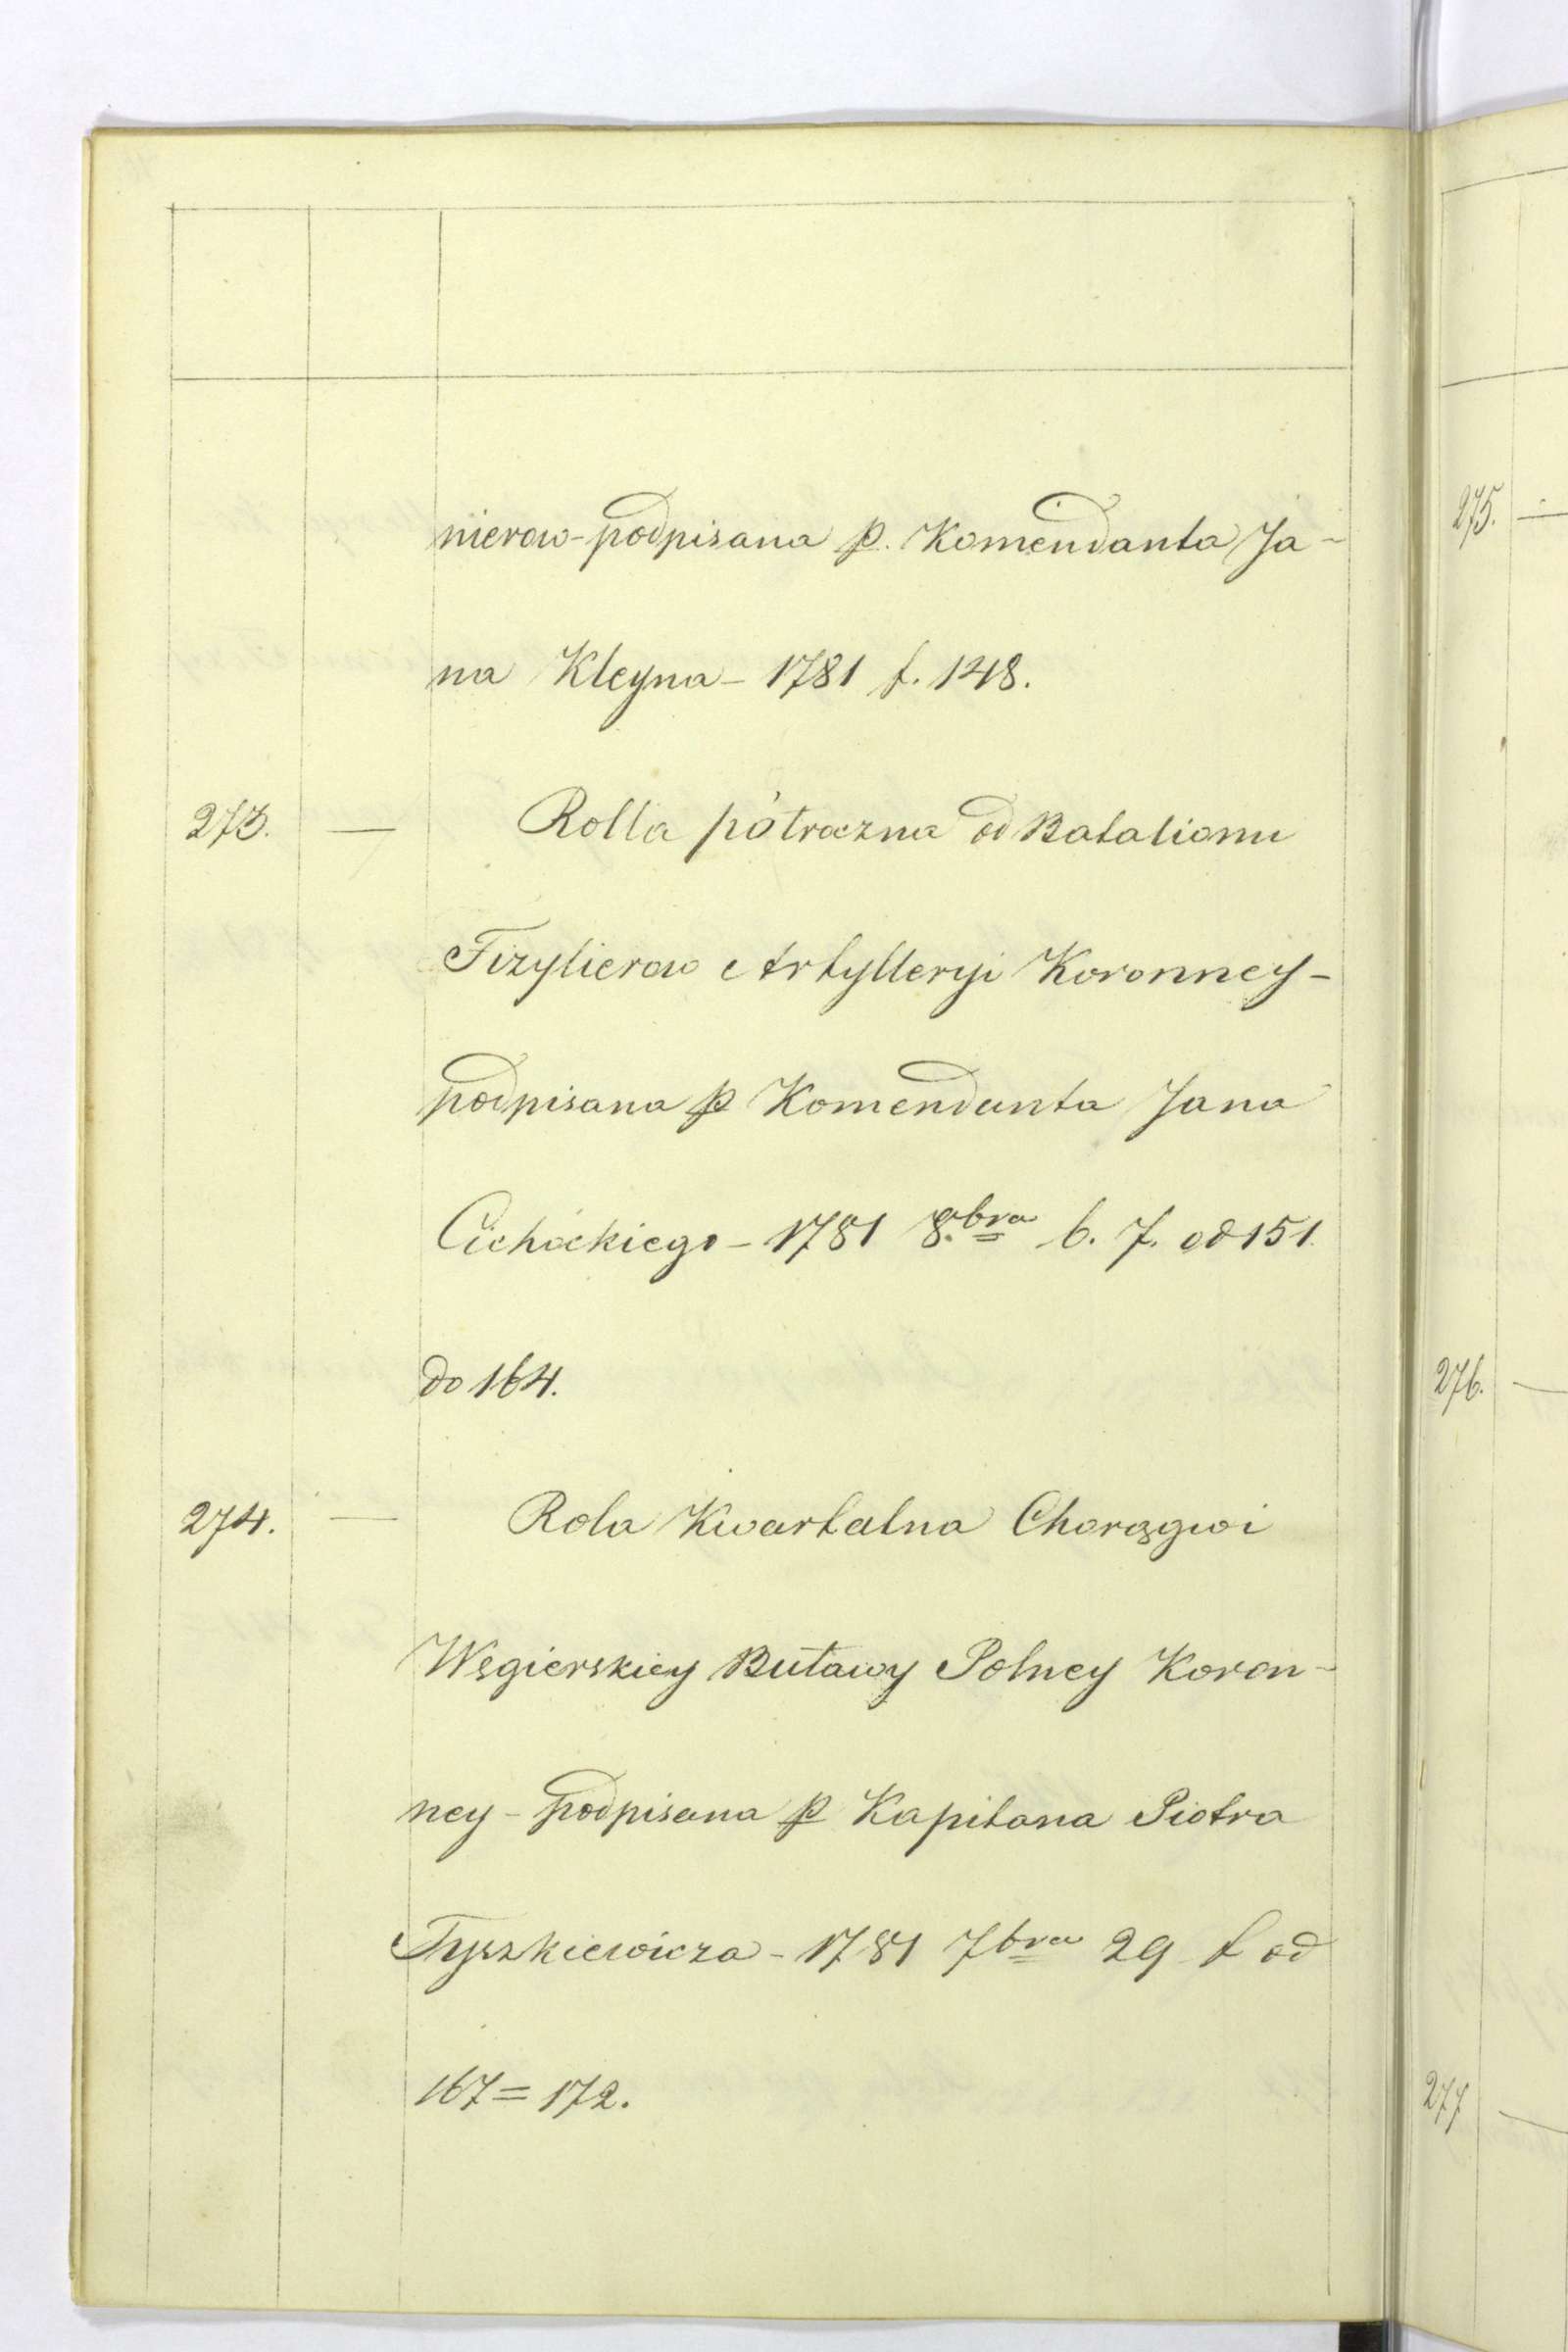 nierow - podpisana p. Komendanta Ja-
na Kleyna - 1781 f. 148.
273. — Rolla pòłroczna od Batalionu
Fizylierow Artylleryi Koronney -
podpisana p Komendanta Jana
Cichockiego - 1781 8.bra 6. f. od 151.
do 164.
274. — Rola Kwartalna Chorągwi
Węgierskiey Buławy Polney Koron-
ney - podpisana p Kapitana Piotra
Tyszkiewicza - 1781 7bra 29 f od
167 = 172.
275. —
276. —
277 —